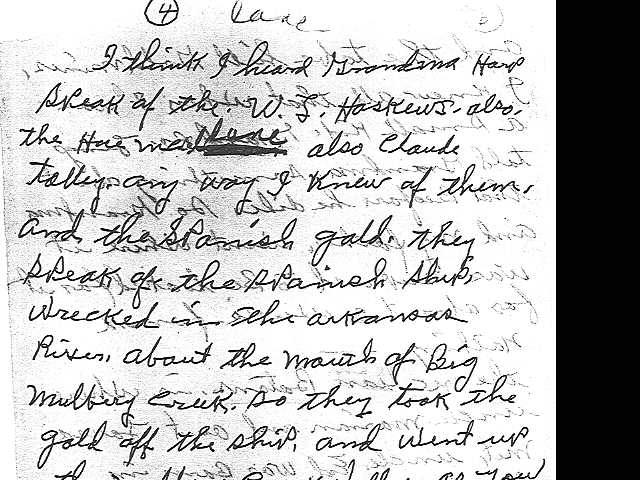 ④ Cave
I think I heard Grandma Harp
speak of the W. T. Haskews, also,
the Hare med also Claude
talley. any way I knew of them.
And, the Spanish gold, they
speak of the spainsh ship,
wrecked in the arkansas
River, about the mouth of Big
Mulbury Creek. so they took the
gold off the ship, and went up